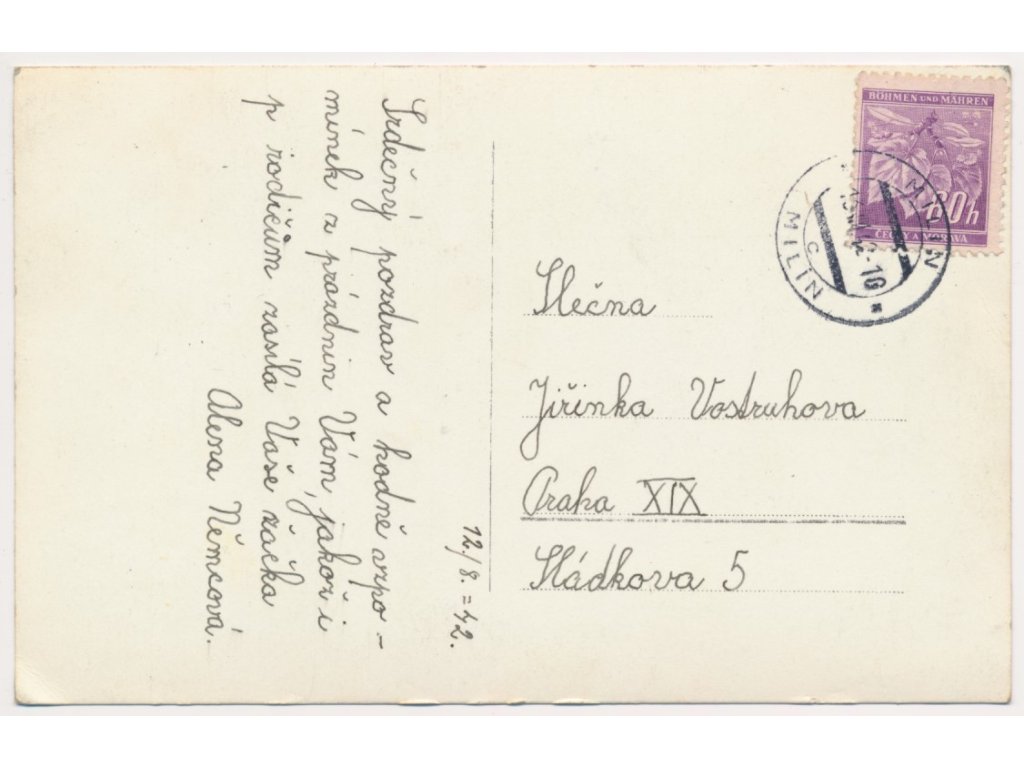 Srdečný pozdrav a hodně vzpo-
mínek z prázdnin Vám, jakož i
p rodičům zasílá Vaše žačka
Alena Němcová.
12./8.=42.
BÖHMEN UND MÄHREN
60 h
ČECHY A MORAVA
MILIN
MILÍN
C
Slečna
Jiřinka Vostruhova
Praha XIX
Sládkova 5